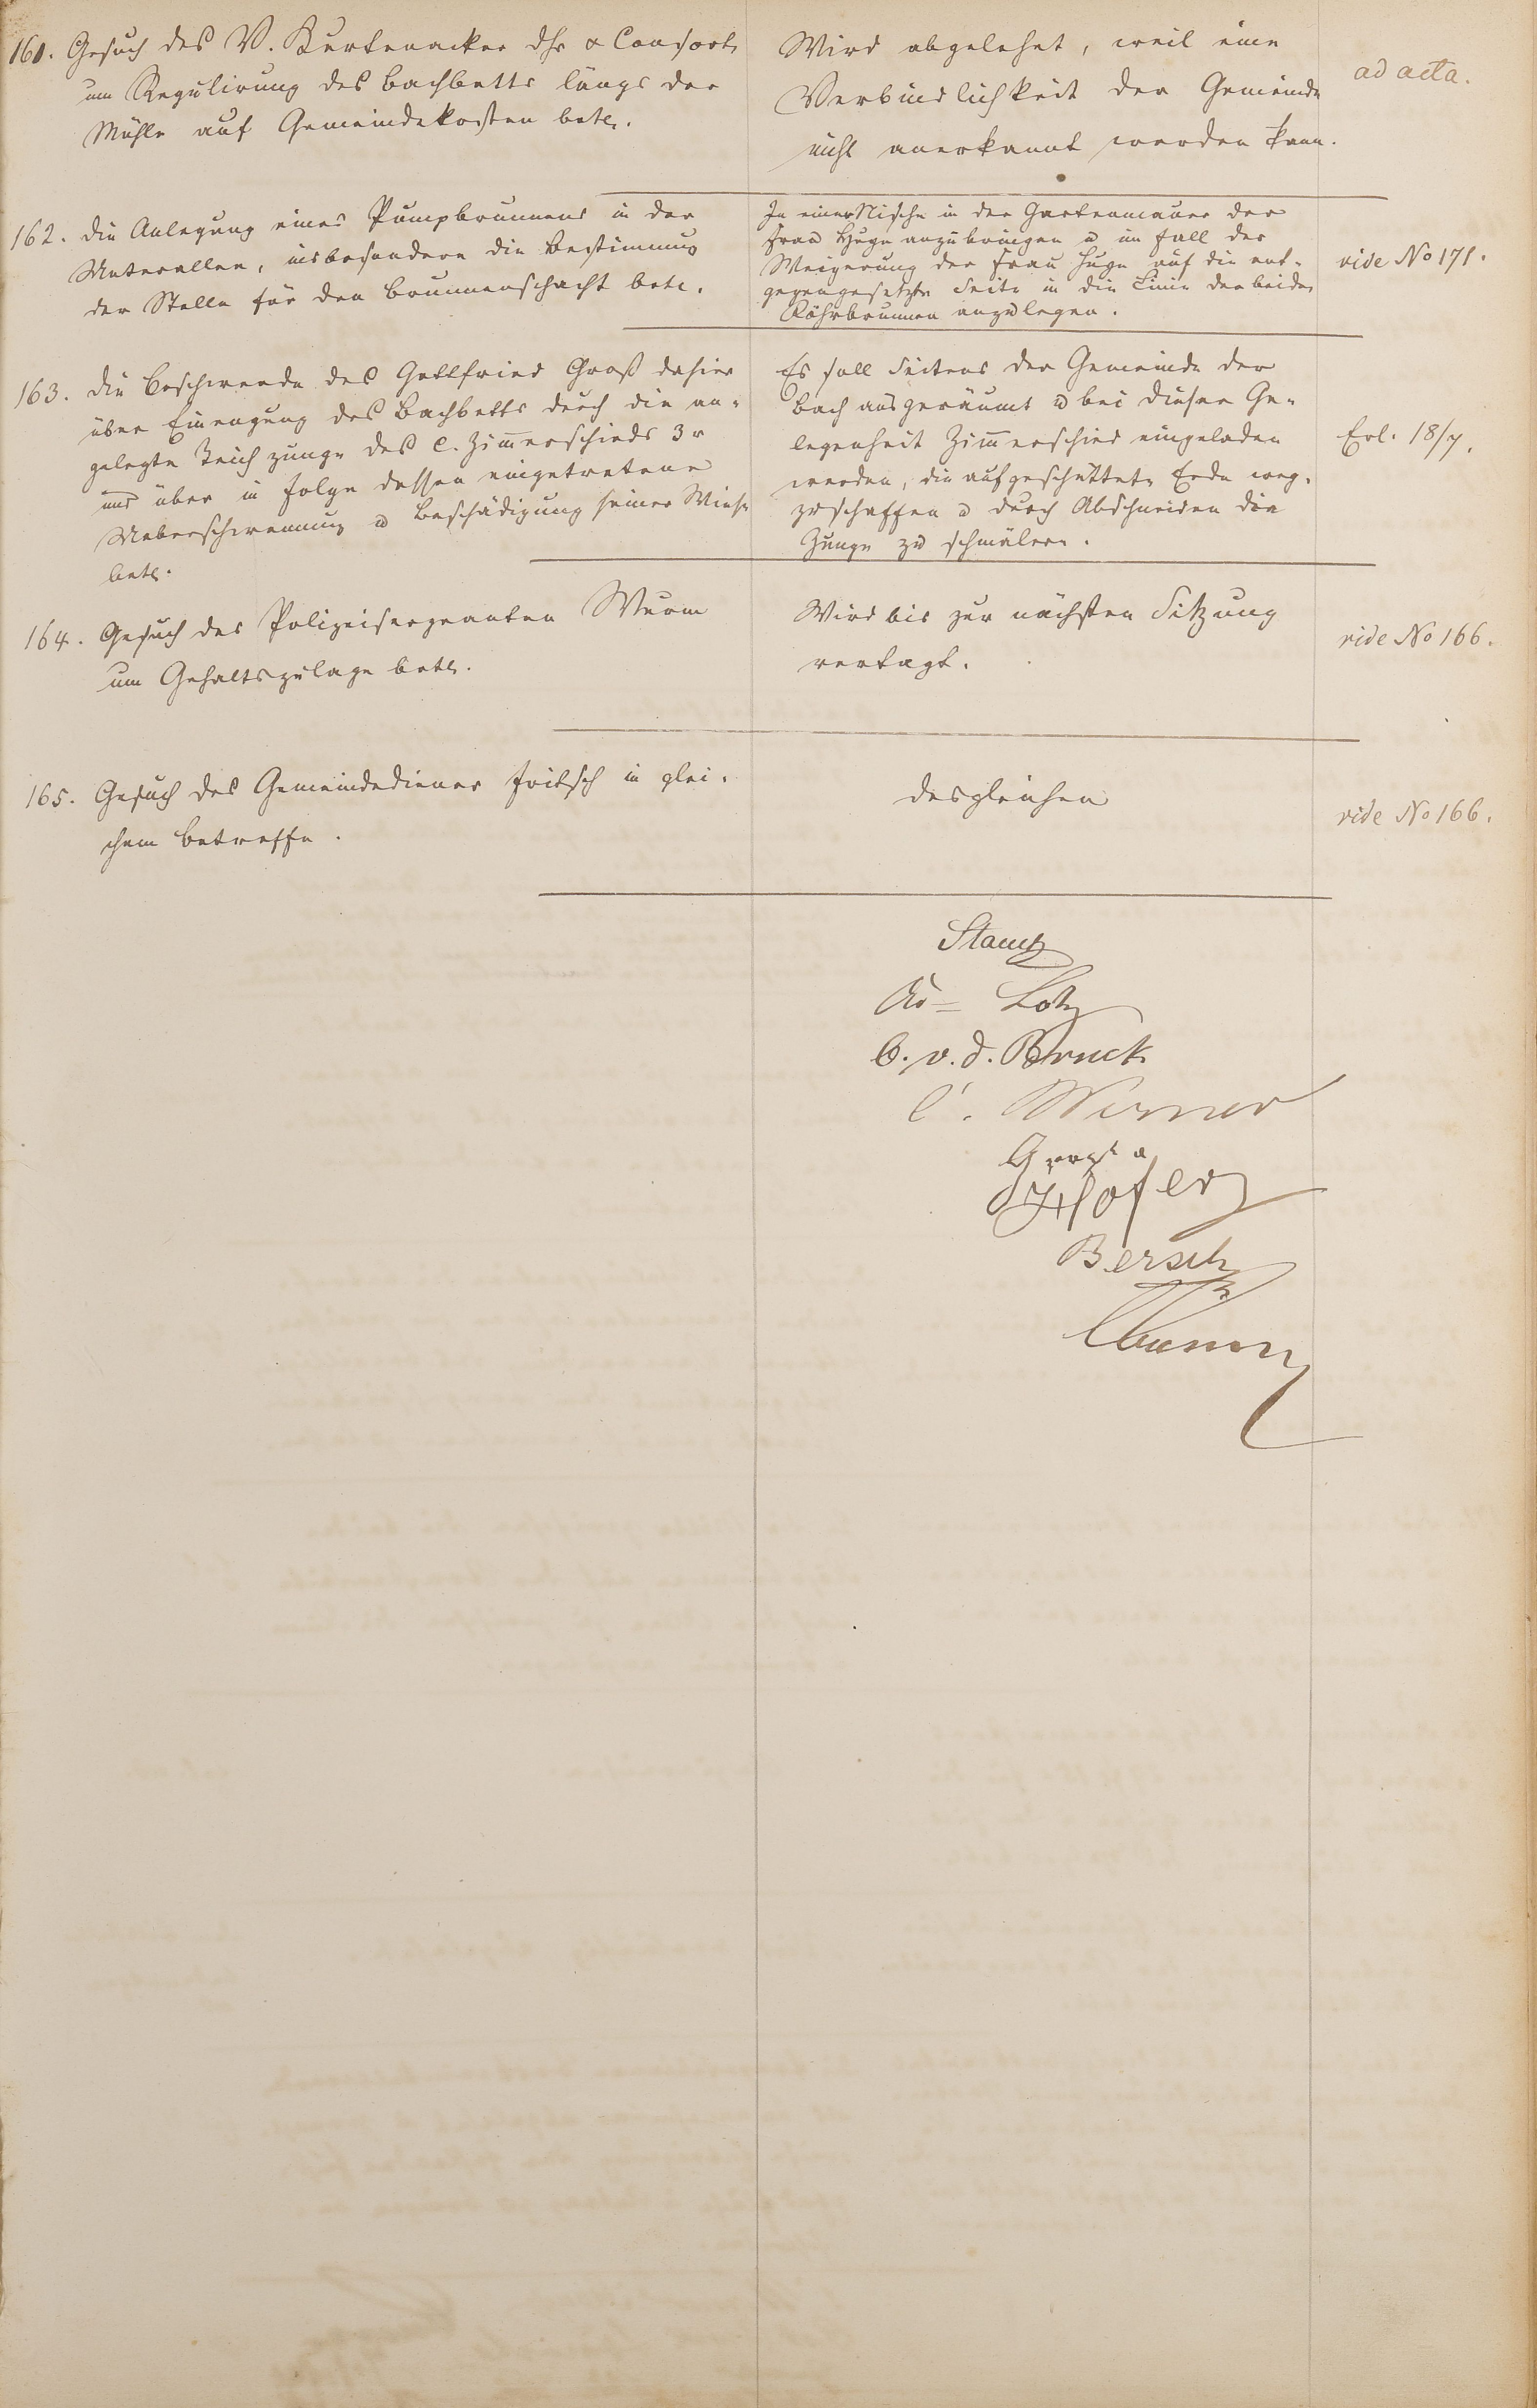 161. Gesuch des V. Kurtenacker dhr & Consort.
um Regulirung des Bachbetts längs der
Mühle auf Gemeindekosten betr.
Wird abgelehnt, weil eine
Verbindlichkeit der Gemeinde
nicht anerkannt werden kann.
ad acta.
162. Die Anlegung eines Pumpbrunnens in der
Unterallee, insbesondere die Bestimmung
der Stelle für den Brunnenschacht betr.
In einer Nische in der Gartenmauer der
Frau Huge anzubringen u im Fall der
Weigerung der Frau Huge auf die ent-
gegengesetzte Seite in die Linie der beiden
Röhrbrunnen anzulegen.
vide No 171.
163. Die Beschwerde des Gottfried Groß dahier
über Einengung des Bachbetts durch die an-
gelegte Teichzunge des C. Zimmerschieds 3r
und über in Folge dessen eingetretene
Ueberschwemmung u Beschädigung seiner Wiese
betr.
Es soll Seitens der Gemeinde der
Bach ausgeräumt u bei dieser Ge-
legenheit Zimmerschied eingeladen
werden, die aufgeschüttete Erde weg-
zuschaffen u durch Abschneiden die
Zunge zu schmälern.
Erl. 18/7.
164. Gesuch des Polizeisergeanten Wurm
um Gehaltszulage betr.
Wird bis zur nächsten Sitzung
vertagt.
vide No 166.
165. Gesuch des Gemeindediener Fritsch in glei-
chem Betreffe.
desgleichen
vide No 166.
Stamm
Lotz
C. v. d. Bruck
C. Werner
Hofer
Bersch